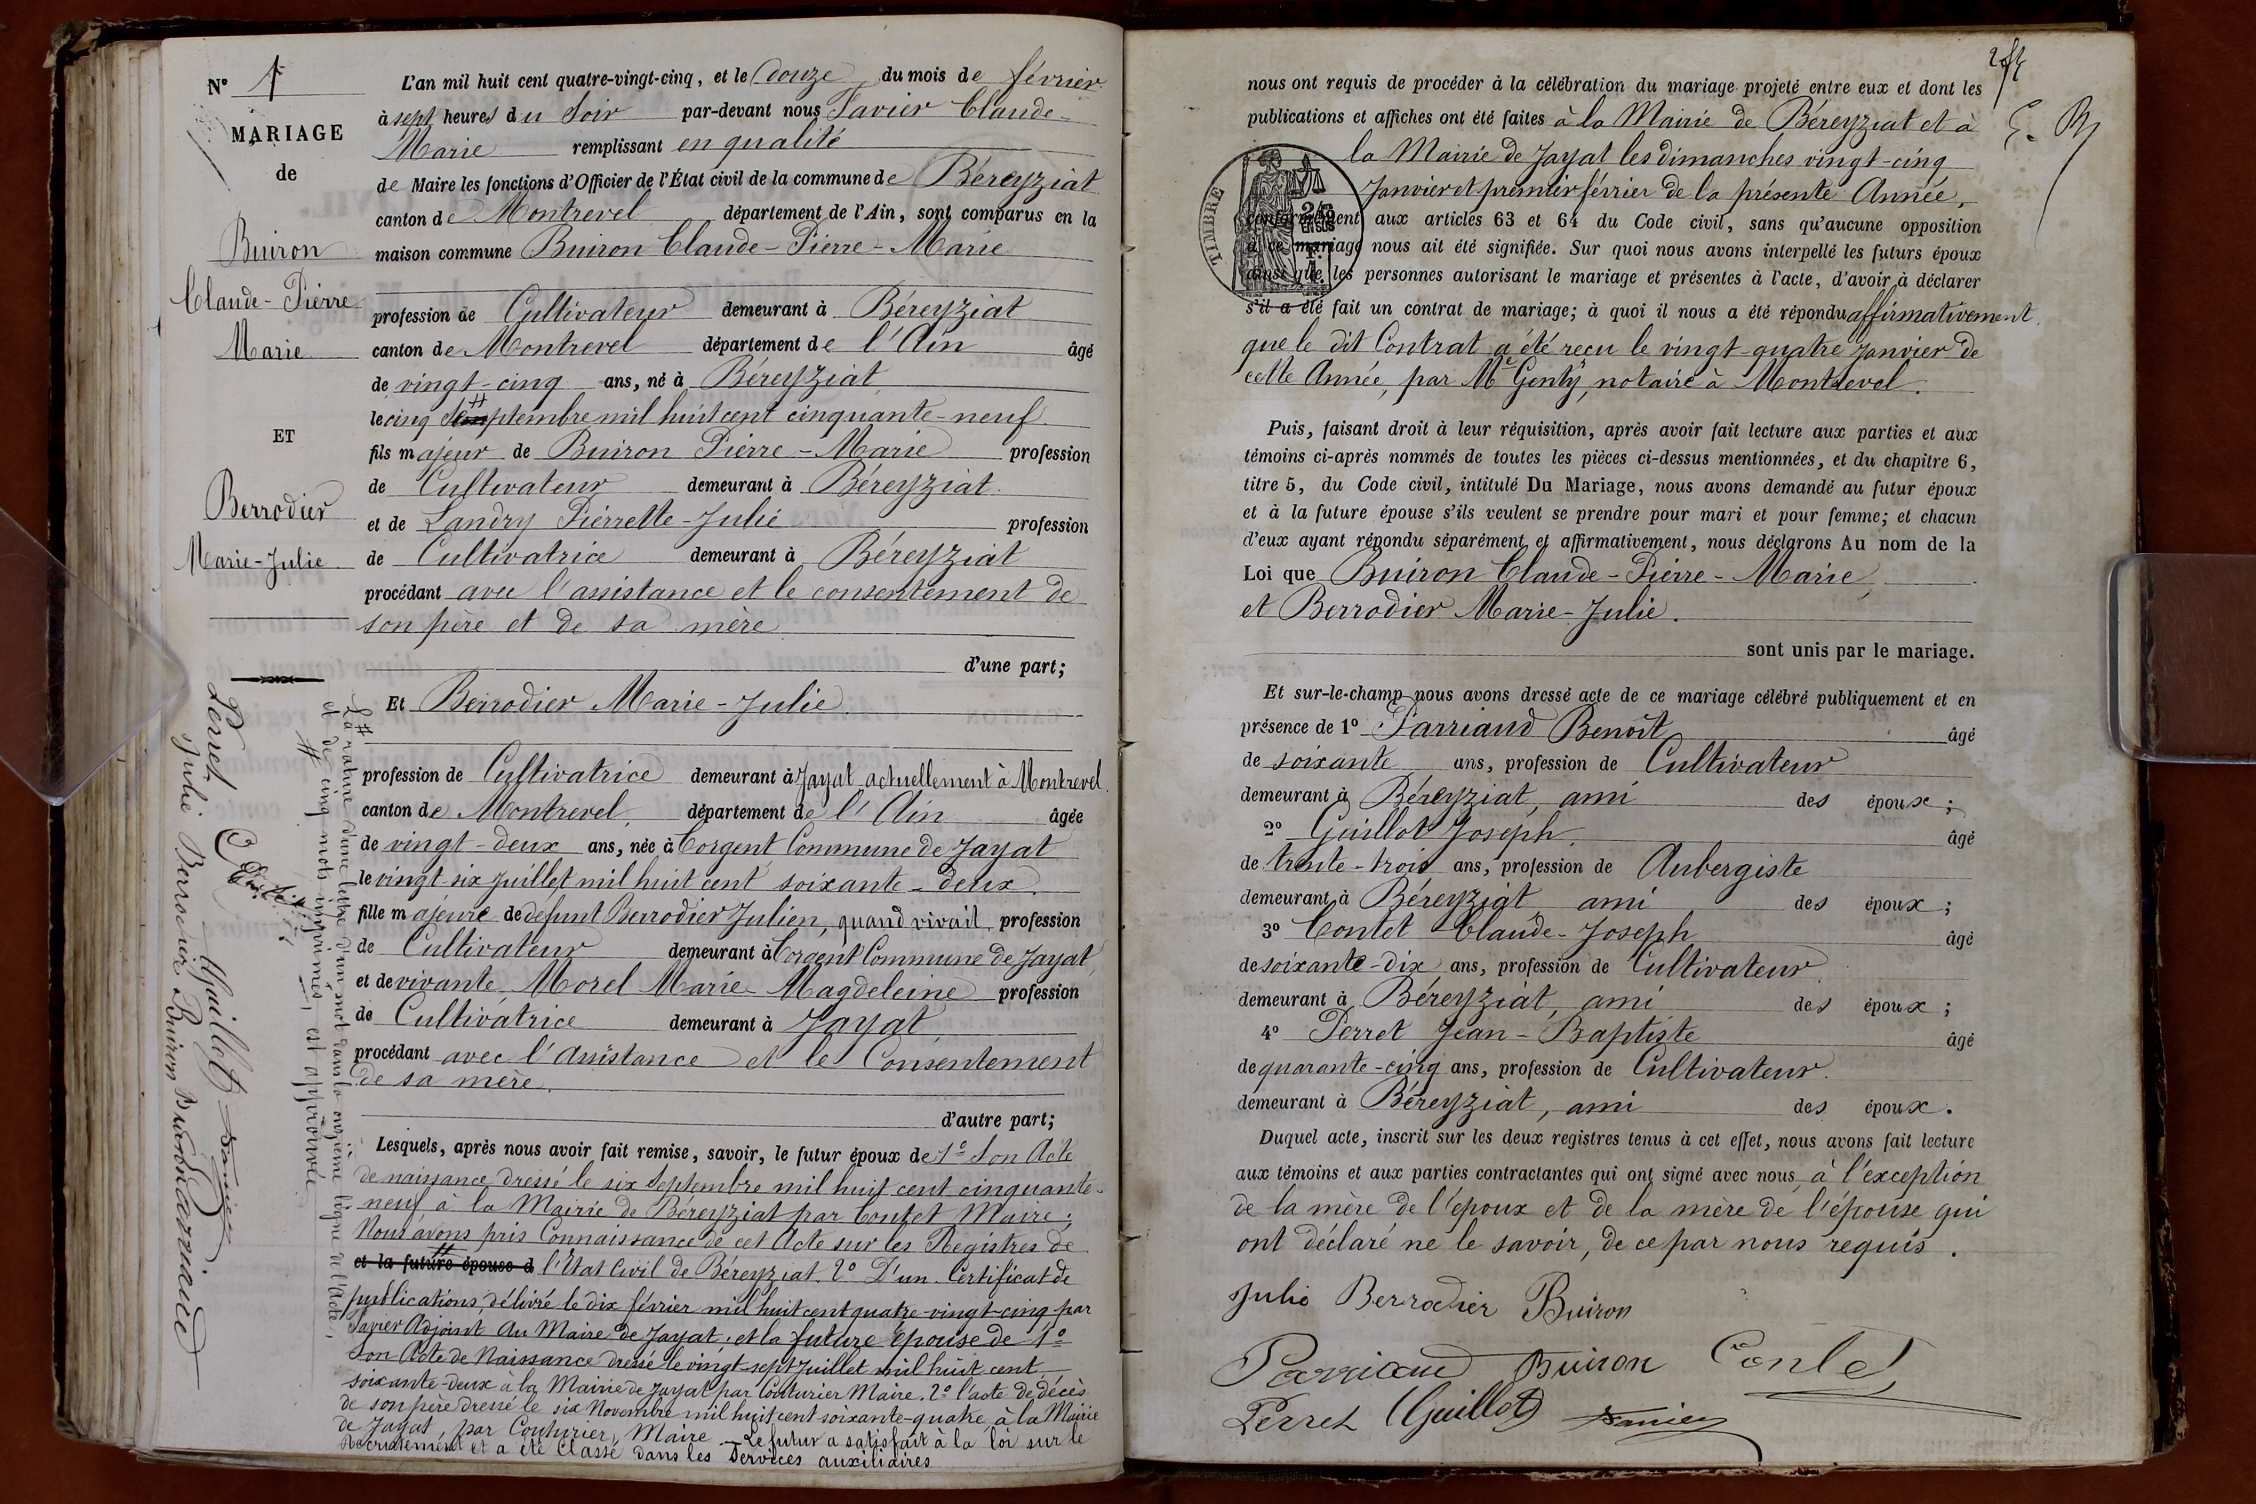 N° 1
MARIAGE
de
Buiron
Claude-Pierre
Marie
ET
Berrodier
Marie-Julie
L'an mil huit cent quatre-vingt-cinq, et le douze du mois de février
à sept heures du soir par-devant nous Favier Claude-
Marie remplissant en qualité
de Maire les fonctions d'Officier de l'État civil de la commune de Béreyziat
canton de Montrevel département de l'Ain, sont comparus en la
maison commune Buiron Claude-Pierre-Marie
profession de Cultivateur demeurant à Béreyziat
canton de Montrevel département de l'Ain âgé
de vingt-cinq ans, né à Béreyziat
le cinq septembre mil huit cent cinquante-neuf
fils majeur de Buiron Pierre-Marie profession
de Cultivateur demeurant à Béreyziat
et de Landry Pierrette-Julie profession
de Cultivatrice demeurant à Béreyziat
procédant avec l'assistance et le consentement de
son père et de sa mère
d'une part;
Et Berrodier Marie-Julie
profession de Cultivatrice demeurant à Jayat actuellement à Montrevel
canton de Montrevel, département de l'Ain âgée
de vingt-deux ans, née à Corgent Commune de Jayat
le vingt six juillet mil huit cent soixante-deux.
fille majeure de défunt Berrodier Julien, quand vivait profession
de Cultivateur demeurant à Corgent Commune de Jayat,
et de vivante Morel Marie-Magdeleine profession
de Cultivatrice demeurant à Jayat
procédant avec l'assistance et le Consentement
de sa mère.
d'autre part;
Lesquels, après nous avoir fait remise, savoir, le futur époux de 1° Son Acte
de naissance dressé le six septembre mil huit cent cinquante-
neuf à la Mairie de Béreyziat par Contet Maire;
Nous avons pris Connaissance de cet Acte sur les Registres de
et la future épouse d l'Etat Civil de Béreyziat. 2° D'un Certificat de
publications, délivré le dix février mil huit cent quatre-vingt-cinq par
Favier Adjoint Au Maire de Jayat, et la future épouse de 1°
Son Acte de Naissance dressé le vingt-sept Juillet mil huit cent
soixante-deux à la Mairie de Jayat par Couturier Maire. 2° l'acte de décès
de son père dressé le six Novembre mil huit cent soixante-quatre à la Mairie
de Jayat, par Couturier, Maire. Le futur a satisfait à la loi sur le
Recrutement et a été classé dans les Services auxiliaires
La rature d'une lettre d'un mot dans la onzième ligne de l'acte,
et de cinq mots imprimés, est approuvée
Julie Berrodier Buiron Buiron Parriaud
Perret Guillot Favier
Contet
nous ont requis de procéder à la célébration du mariage projeté entre eux et dont les
publications et affiches ont été faites à la Mairie de Béreyziat et à
la Mairie de Jayat les dimanches vingt-cinq
Janvier et premier février de la présente Année,
conformément aux articles 63 et 64 du Code civil, sans qu'aucune opposition
à ce mariage nous ait été signifiée. Sur quoi nous avons interpellé les futurs époux
ainsi que les personnes autorisant le mariage et présentes à l'acte, d'avoir à déclarer
s'il a été fait un contrat de mariage; à quoi il nous a été répondu affirmativement.
que le dit Contrat a été reçu le vingt-quatre janvier de
cette Année, par Me Genty, notaire à Montrevel.
TIMBRE
Puis, faisant droit à leur réquisition, après avoir fait lecture aux parties et aux
témoins ci-après nommés de toutes les pièces ci-dessus mentionnées, et du chapitre 6,
titre 5, du Code civil, intitulé Du Mariage, nous avons demandé au futur époux
et à la future épouse s'ils veulent se prendre pour mari et pour femme; et chacun
d'eux ayant répondu séparément et affirmativement, nous déclarons Au nom de la
Loi que Buiron Claude-Pierre-Marie,
et Berrodier Marie-Julie.
sont unis par le mariage.
Et sur-le-champ nous avons dressé acte de ce mariage célébré publiquement et en
présence de 1° Parriaud Benoît âgé
de soixante ans, profession de Cultivateur
demeurant à Béreyziat, ami des époux;
2° Guillot Joseph. âgé
de trente-trois ans, profession de Aubergiste
demeurant à Béreyziat ami des époux;
3° Contet Claude-Joseph âgé
de soixante-dix ans, profession de Cultivateur
demeurant à Béreyziat, ami des époux;
4° Perret Jean-Baptiste âgé
de quarante-cinq ans, profession de Cultivateur.
demeurant à Béreyziat, ami des époux.
Duquel acte, inscrit sur les deux registres tenus à cet effet, nous avons fait lecture
aux témoins et aux parties contractantes qui ont signé avec nous, à l'exception
de la mère de l'époux et de la mère de l'épouse qui
ont déclaré ne le savoir, de ce par nous requis.
Julie Berrodier Buiron
Parriaud Buiron Contet
Perret Guillot Favier